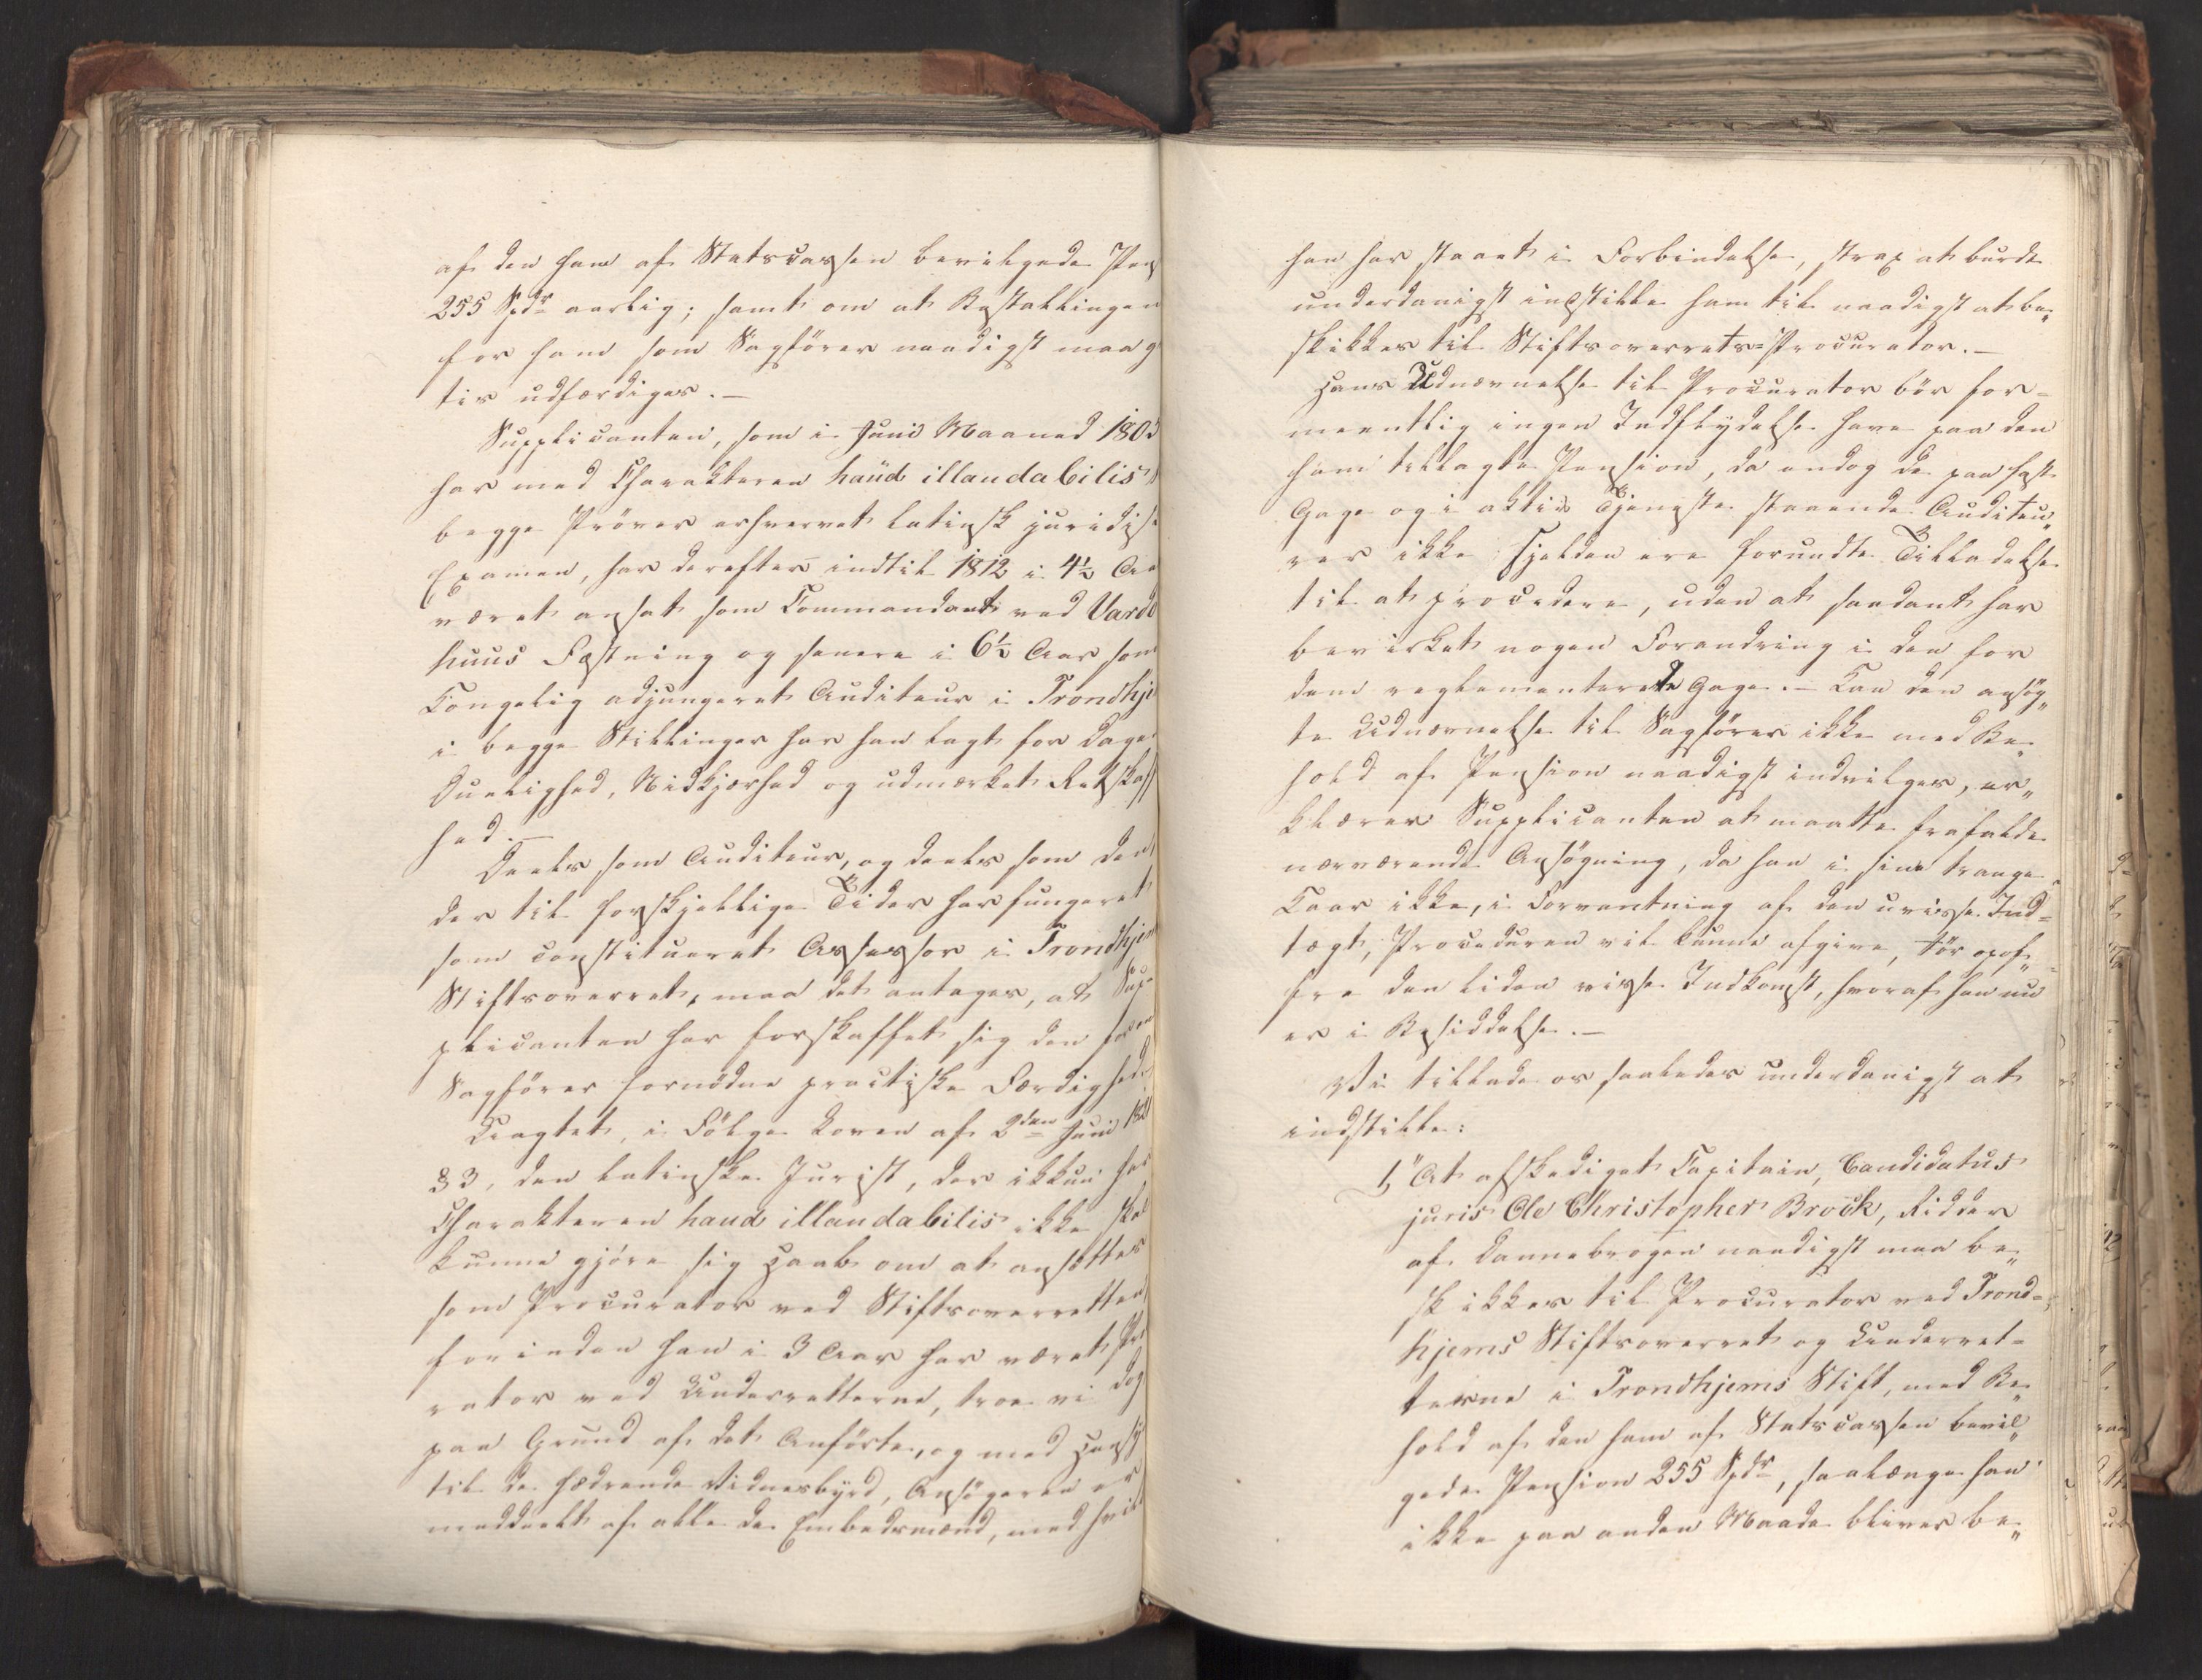 af den ham af Statscassen bevilgede Pens
255 Spdr aarlig; samt om at Bestallingen
for ham som Sagförer naadigst maa g
tis udfærdiges.—
Supplicanten, som i Juni Maaned 1805
har med Charakteren haud illaudabilis
begge Pröver erhvervet latinsk juridisk
Examen, har derefter indtil 1812 i 4½ Aar
været ansat som Commandant ved Vardö
huus Fæstning og senere i 6½ Aar som
Kongelig adjungeret Auditeur i Trondhje
i begge Stillinger har han lagt for Dagen
Duelighed, Nidkjærhed og udmærket Retskaff
hed.—
Deels som Auditeur, og deels som den,
der til forskjellige Tider har fungeret
som constitueret Assessor i Trondhjem
Stiftsoverret, maa det antages, at Sup-
plicanten har forskaffet sig den for en
Sagförer fornödne practiske Færdighed.
Uagtet, i Fölge Loven af 2den Juni 182
§ 3, den latinske Jurist, der ikkun har
Charakteren haud illaudabilis ikke skal
kunne gjöre sig Haab om at ansættes
som Procurator ved Stiftsoverretten
forinden han i 3 Aar har været Pro
rator ved Underretterne, troe vi dog
paa Grund af det Anförte, og med Hensy
til de hædrende Vidnesbyrd, Ansögeren er
meddeelt af alle de Embedsmænd, med hvilk
han har staaet i Forbindelse, strax at burde
underdanigst indstille ham til naadigst at be„
skikkes til Stiftsoverrets-Procurator.—
Hans Udnævnelse til Procurator bör for-
meentlig ingen Indflydelse have paa den
ham tillagte Pension, da endog de paa fast
Gage og i aktiv Tjeneste staaende Auditeu„
rer ikke sjelden ere forundte Tilladelse
til at procedere, uden at saadant har
bevirket nogen Forandring i den for
dem reglementerede Gage.— Kan den ansög„
te Udnævnelse til Sagförer ikke med Be„
hold af Pension naadigst indvilges, er„
klærer Supplicanten at maatte frafalde
nærværende Ansögning, da han i sine trange
Kaar ikke, i Forventning af den uvisse Ind-
tægt, Proceduren vil kunne afgive, tör opof„
fre den liden visse Indkomst, hvoraf han nu
er i Besiddelse.—
Vi tillade os saaledes underdanigst at
indstille:
1, "At afskediget Capitain, Candidatus
juris Ole Christopher Brock, Ridder
af Dannebrogen naadigst maa be„
skikkes til Procurator ved Trond-
hjems Stiftsoverret og Underret-
terne i Trondhjems Stift, med Be„
hold af den ham af Statscassen bevil„
gede Pension 255 Spdr, saalænge han
ikke paa anden Maade bliver be„